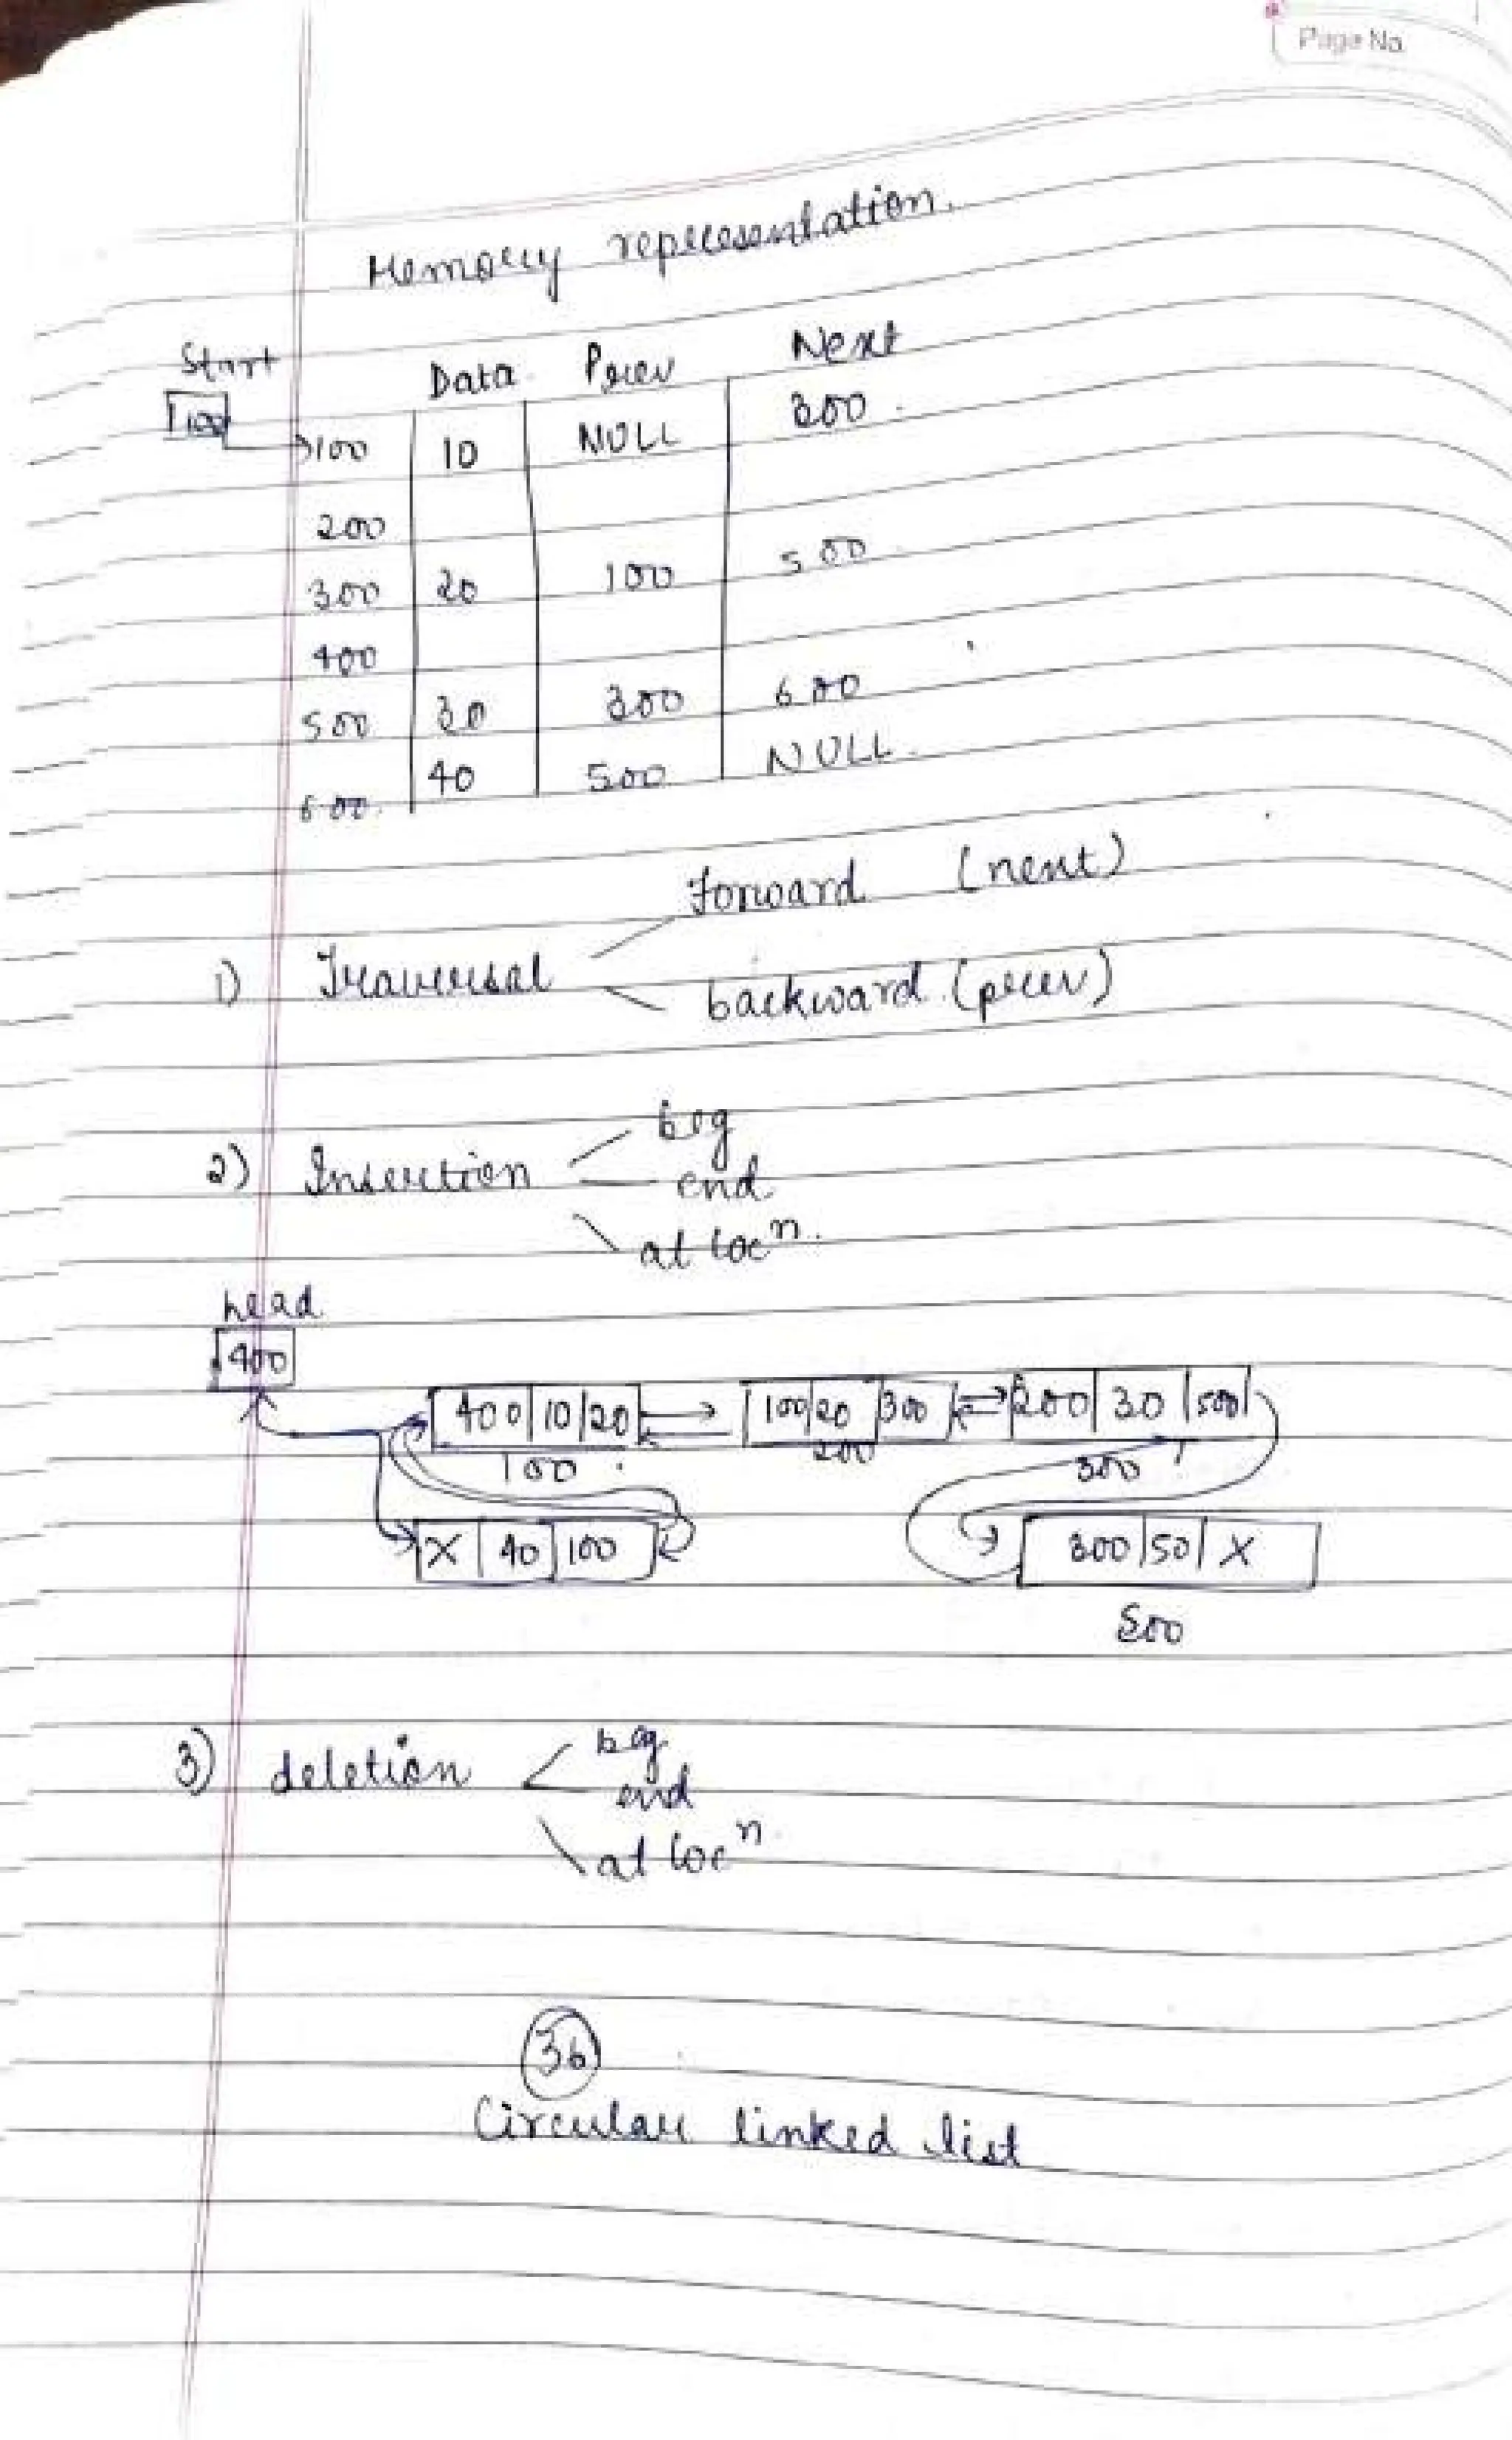 Page No.
Memory representation.
Start
Data Prev Next
100
100 10 NULL 300
200
300 20 100 500
400
500 30 300 600
600 40 500 NULL
Forward (next)
1) Traversal
backward (prev)
beg
2) Insertion
end
at locn.
head
400
400 10 20 100 20 300 200 30 500
100 200 300
X 40 100 300 50 X
500
beg
3) deletion
end
at locn
36
Circular linked list